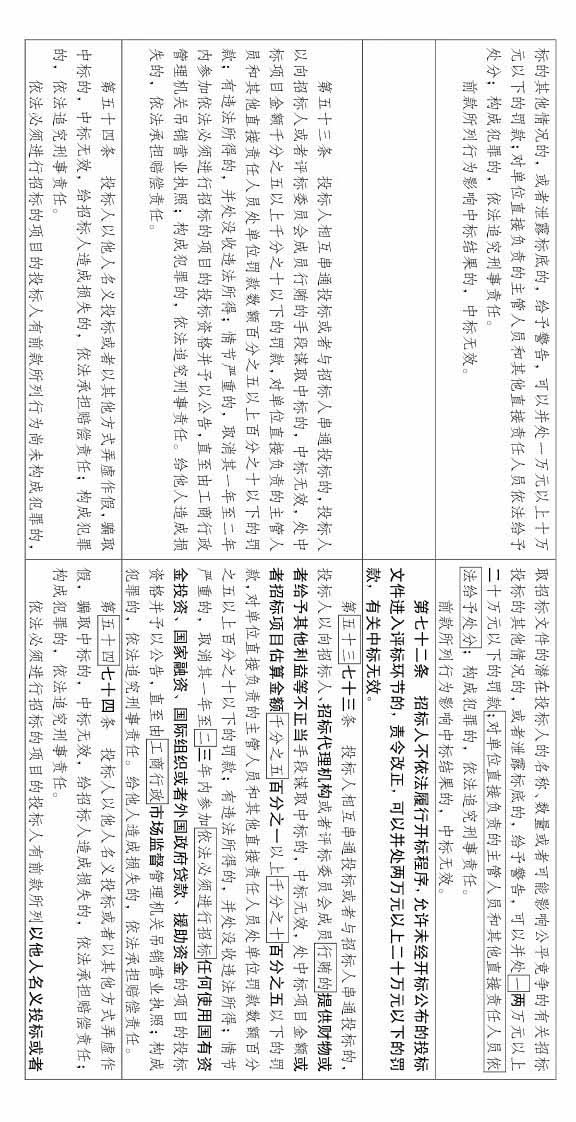 标的其他情况的，或者泄露标底的，给予警告，可以并处一万元以上十万
元以下的罚款；对单位直接负责的主管人员和其他直接责任人员依法给予
处分；构成犯罪的，依法追究刑事责任。
前款所列行为影响中标结果的，中标无效。
取招标文件的潜在投标人的名称、数量或者可能影响公平竞争的有关招标
投标的其他情况的，或者泄露标底的，给予警告，可以并处一两万元以上
二十万元以下的罚款；对单位直接负责的主管人员和其他直接责任人员依
法给予处分；构成犯罪的，依法追究刑事责任。
前款所列行为影响中标结果的，中标无效。
第七十二条 招标人不依法履行开标程序，允许未经开标公布的投标
文件进入评标环节的，责令改正，可以并处两万元以上二十万元以下的罚
款，有关中标无效。
第五十三条 投标人相互串通投标或者与招标人串通投标的，投标人
以向招标人或者评标委员会成员行贿的手段谋取中标的，中标无效，处中
标项目金额千分之五以上千分之十以下的罚款，对单位直接负责的主管人
员和其他直接责任人员处单位罚款数额百分之五以上百分之十以下的罚
款；有违法所得的，并处没收违法所得；情节严重的，取消其一年至二年
内参加依法必须进行招标的项目的投标资格并予以公告，直至由工商行政
管理机关吊销营业执照；构成犯罪的，依法追究刑事责任。给他人造成损
失的，依法承担赔偿责任。
第五十三七十三条 投标人相互串通投标或者与招标人串通投标的，
投标人以向招标人、招标代理机构或者评标委员会成员行贿的提供财物或
者给予其他利益等不正当手段谋取中标的，中标无效，处中标项目金额或
者招标项目估算金额千分之五百分之一以上千分之十百分之五以下的罚
款，对单位直接负责的主管人员和其他直接责任人员处单位罚款数额百分
之五以上百分之十以下的罚款；有违法所得的，并处没收违法所得；情节
严重的，取消其一年至二三年内参加依法必须进行招标任何使用国有资
金投资、国家融资、国际组织或者外国政府贷款、援助资金的项目的投标
资格并予以公告，直至由工商行政市场监督管理机关吊销营业执照；构成
犯罪的，依法追究刑事责任。给他人造成损失的，依法承担赔偿责任。
第五十四条 投标人以他人名义投标或者以其他方式弄虚作假，骗取
中标的，中标无效，给招标人造成损失的，依法承担赔偿责任；构成犯罪
的，依法追究刑事责任。
依法必须进行招标的项目的投标人有前款所列行为尚未构成犯罪的，
第五十四七十四条 投标人以他人名义投标或者以其他方式弄虚作
假，骗取中标的，中标无效，给招标人造成损失的，依法承担赔偿责任；
构成犯罪的，依法追究刑事责任。
依法必须进行招标的项目的投标人有前款所列以他人名义投标或者